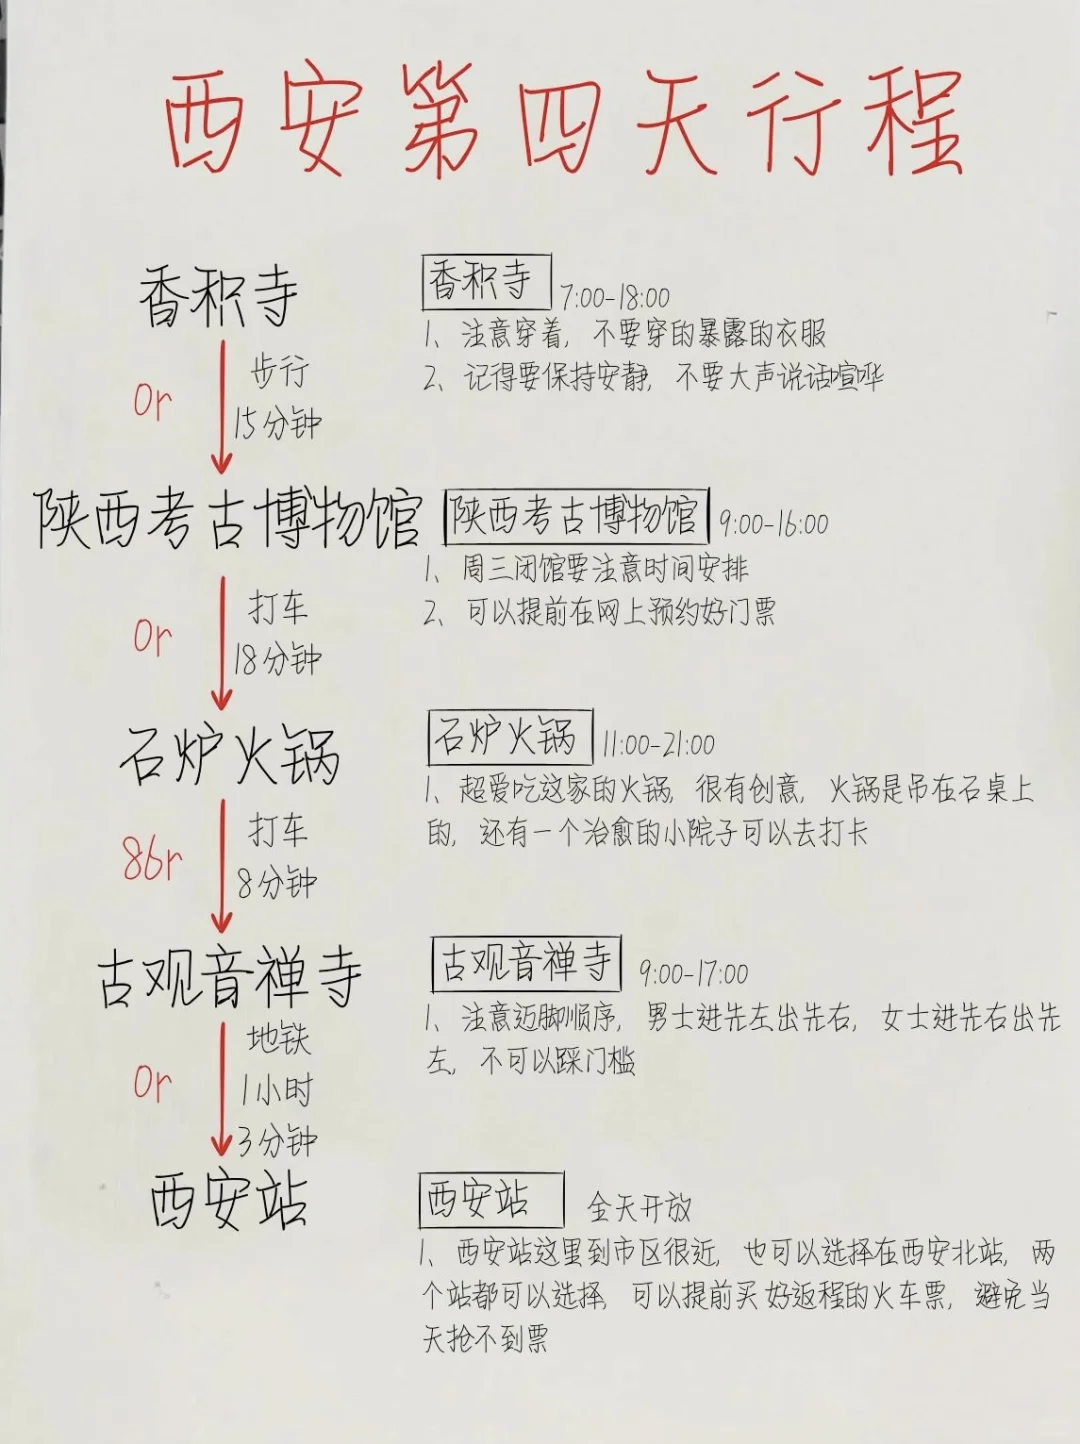 西安第四天行程
香积寺
0r
步行
15分钟
陕西考古博物馆
0r
打车
18分钟
石炉火锅
86r
打车
8分钟
古观音禅寺
0r
地铁
1小时
3分钟
西安站
香积寺 7:00-18:00
1、注意穿着,不要穿的暴露的衣服
2、记得要保持安静,不要大声说话喧哗
陕西考古博物馆 9:00-16:00
1、周三闭馆要注意时间安排
2、可以提前在网上预约好门票
石炉火锅 11:00-21:00
1、超爱吃这家的火锅,很有创意,火锅是吊在石桌上
的,还有一个治愈的小院子可以去打卡
古观音禅寺 9:00-17:00
1、注意迈脚顺序,男士进先左出先右,女士进先右出先
左,不可以踩门槛
西安站 全天开放
1、西安站这里到市区很近,也可以选择在西安北站,两
个站都可以选择,可以提前买好返程的火车票,避免当
天抢不到票